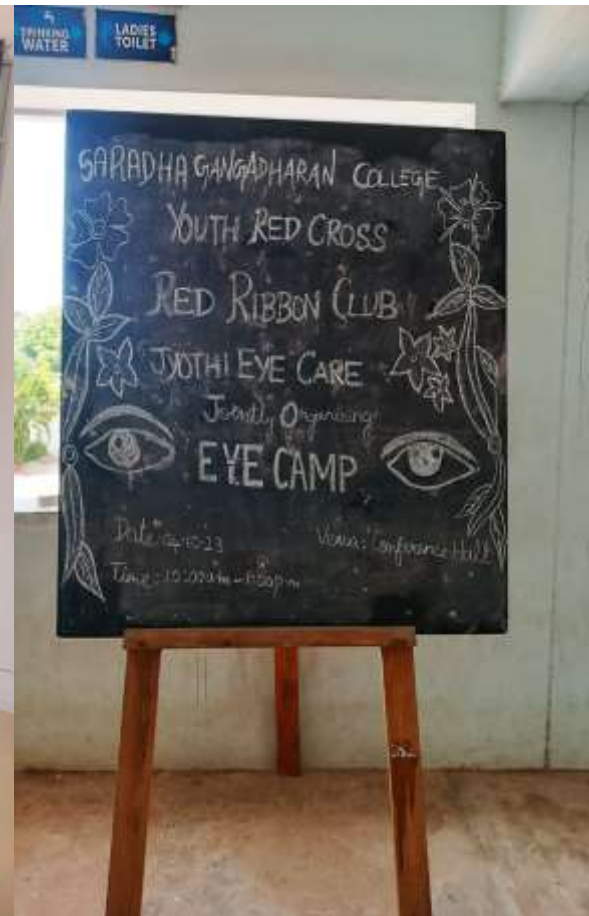 DRINKING WATER
LADIES TOILET
SARADHA GANGADHARAN COLLEGE
YOUTH RED CROSS
RED RIBBON CLUB
JYOTHI EYE CARE
Jointly Organising
EYE CAMP
Date: 04-10-23
Venue: Conference Hall
Time: 10:00am -